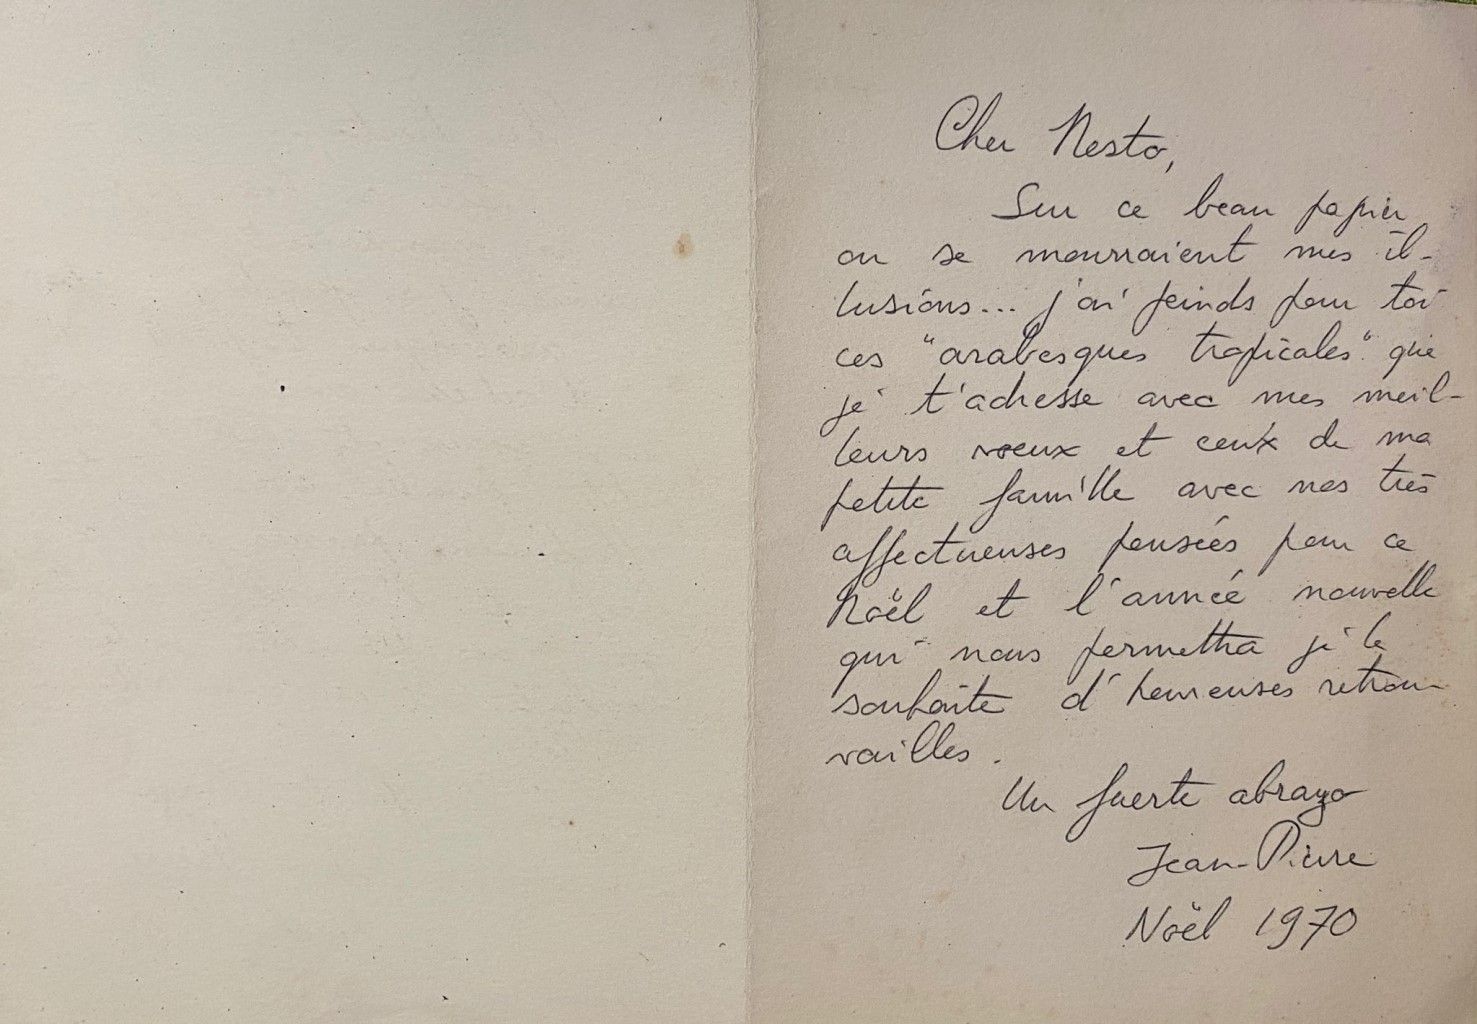 Cher Nesto,
Sur ce beau papier
où se mourraient mes il-
lusions... j'ai peinds pour toi
ces "arabesques tropicales" que
je t'adresse avec mes meil-
leurs vœux et ceux de ma
petite famille avec nos très
affectueuses pensées pour ce
Noël et l'année nouvelle
qui nous permettra je le
souhaite d'heureuses retrou-
vailles.
Un fuerte abrazo
Jean-Pierre
Noël 1970